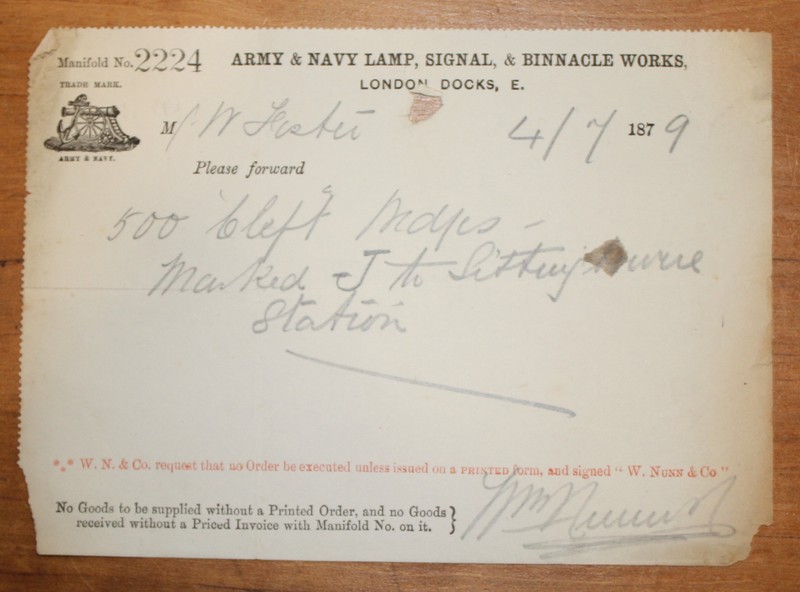 Manifold No. 2224
ARMY & NAVY LAMP, SIGNAL, & BINNACLE WORKS,
LONDON DOCKS, E.
TRADE MARK.
ARMY & NAVY.
M W 4/7 1879
Please forward
500 "Cleft"
Marked J to Sittingbourne
Station
*** W. N. & Co. request that no Order be executed unless issued on a PRINTED form, and signed "W. NUNN & Co"
No Goods to be supplied without a Printed Order, and no Goods
received without a Priced Invoice with Manifold No. on it.
Wm Nunn & Co